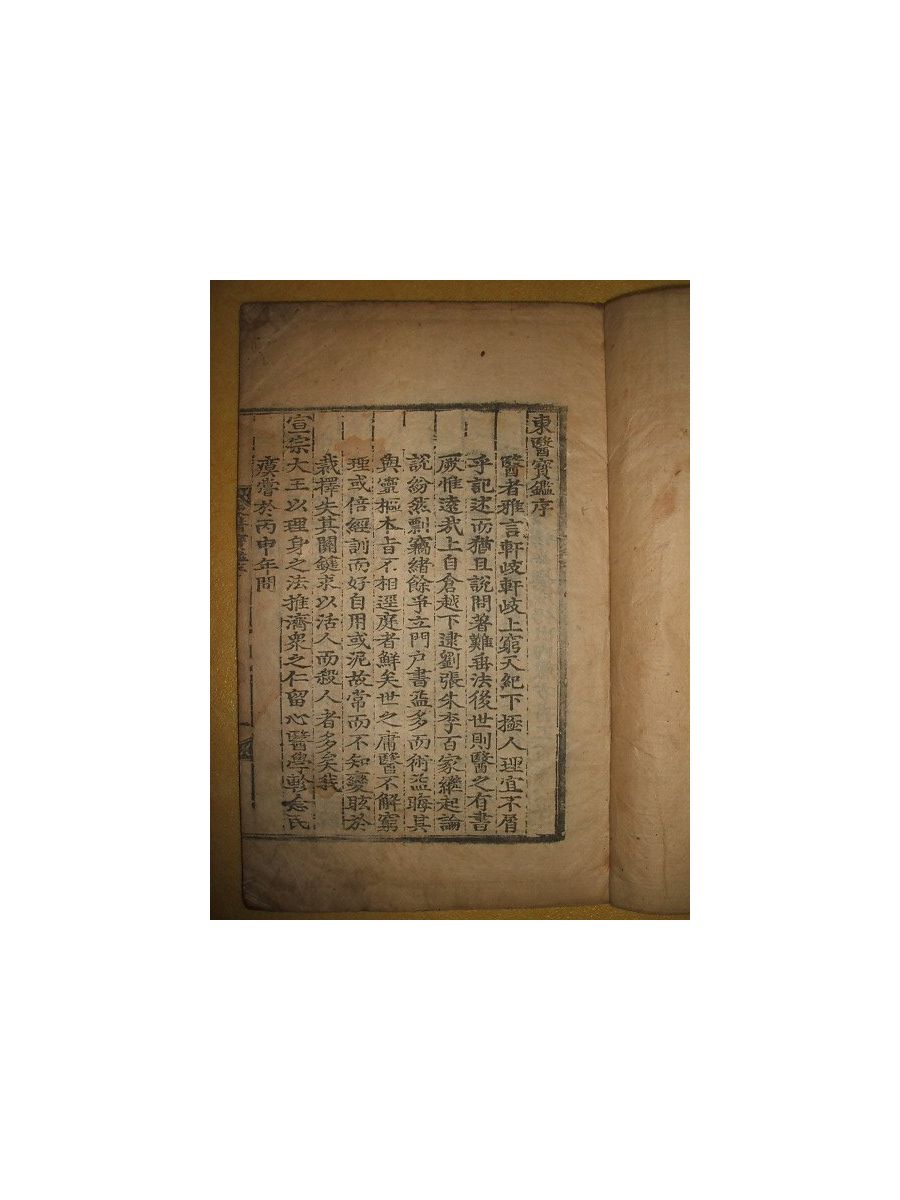 東醫寶鑑序
醫者雅言軒歧軒歧上窮天紀下極人理宜不屑
乎記述而猶且說問著難垂法後世則醫之有書
厥惟遠哉上自倉越下逮劉張朱李百家繼起論
說紛然剽竊緖餘爭立門户書益多而術益晦其
與靈樞本旨不相逕庭者鮮矣世之庸醫不解窮
理或倍經訓而好自用或泥故常而不知變眩於
裁擇失其關鍵求以活人而殺人者多矣我
宣宗大王以理身之法推濟衆之仁留心醫學軫念民
瘼嘗於丙申年間